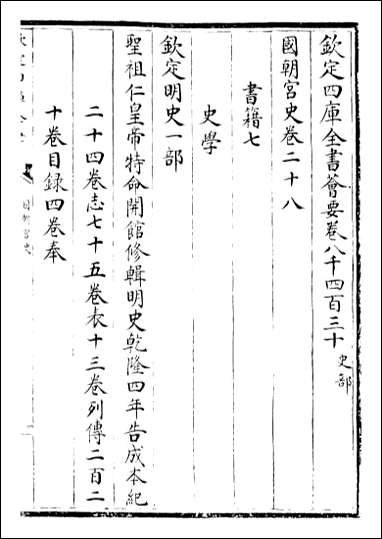 欽定四庫全書薈要卷八千四百三十 史部
國朝宮史卷二十八
書籍七
史學
欽定明史一部
聖祖仁皇帝特命開館修輯明史乾隆四年告成本紀
二十四卷志七十五卷表十三卷列傳二百二
十卷目録四卷奉